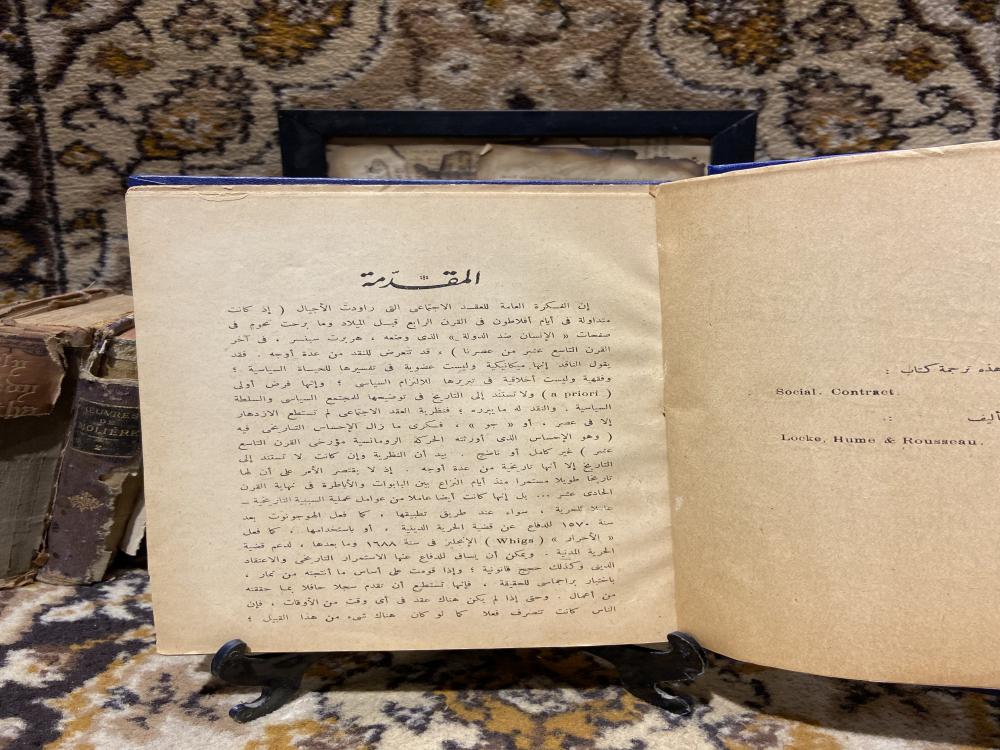 هذه ترجمة كتاب :
Social. Contract.
أليف ::
Locke, Hume & Rousseau.
المقدّمة
إن الفكرة العامة للعقد الاجتماعى التى راودت الأجيال ( إذ كانت
متداولة فى أيام أفلاطون فى القرن الرابع قبل الميلاد وما برحت تحوم فى
صفحات « الإنسان ضد الدولة » الذى وضعه ، هربرت سبنسر ، فى آخر
القرن التاسع عشر من عصرنا ) ، قد تتعرض للنقد من عدة أوجه . فقد
يقول الناقد إنها ميكانيكية وليست عضوية فى تفسيرها للحياة السياسية ؛
وفقهية وليست أخلاقية فى تبريرها للالزام السياسى ؛ وإنها فرض أولى
( a priori ) ولا تستند إلى التاريخ فى توضيحها للمجتمع السياسى والسلطة
السياسية . والنقد له ما يبرره ؛ فنظرية العقد الاجتماعى لم تستطع الازدهار
إلا فى عصر ، أو « جو » ، فكرى ما زال الإحساس التاريخى فيه
( وهو الإحساس الذى أورثته الحركة الرومانسية مؤرخى القرن التاسع
عشر ) غير كامل أو ناضج . بيد أن النظرية وإن كانت لا تستند إلى
التاريخ إلا أنها تاريخية من عدة أوجه . إذ لا يقتصر الأمر على أن لها
تاريخا طويلا مستمرا منذ أيام النزاع بين البابوات والأباطرة فى نهاية القرن
الحادى عشر ... بل إنها كانت أيضا عاملا من عوامل عملية السببية التاريخية –
عاملا للحرية ، سواء عند طريق تطبيقها ، كما فعل الهوجونوت بعد
سنة ١٥٧٠ للدفاع عن قضية الحرية الدينية ، أو باستخدامها ، كما فعل
« الأحرار » ( Whigs ) الإنجليز فى سنة ١٦٨٨ وما بعدها ، لدعم قضية
الحرية المدنية . ويمكن أن يساق للدفاع عنها الاستمرار التاريخى والاعتقاد
الدينى وكذلك حجج قانونية ؛ وإذا قومت على أساس ما أنتجته من ثمار ،
باختبار براجماسى للحقيقة ، فإنها تستطيع أن تقدم سجلا حافلا بما حققته
من أعمال . وحتى إذا لم يكن هناك عقد فى أى وقت من الأوقات ، فإن
الناس كانت تتصرف فعلا كما لو كان هناك شىء من هذا القبيل ؛
ŒUVRES
DE
MOLIÈRE